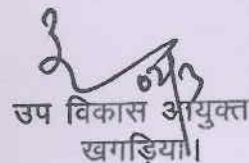 उप विकास आयुक्त
खगड़िया।